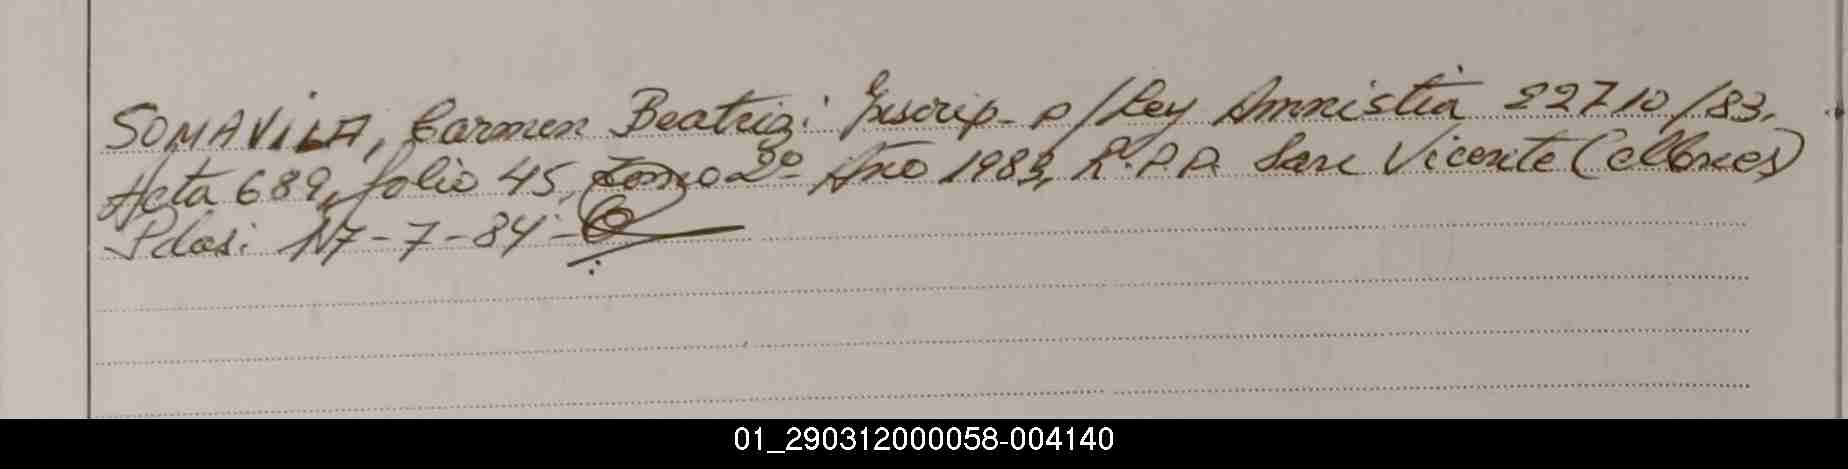 SOMAVILA, Carmen Beatriz: Inscrip. p/Ley Amnistia 22710/83.
Acta 689, folio 45, tomo 2º Año 1983, R.P.P. San Vicente (Mnes)
Pdas: 17-7-84-
01_290312000058-004140